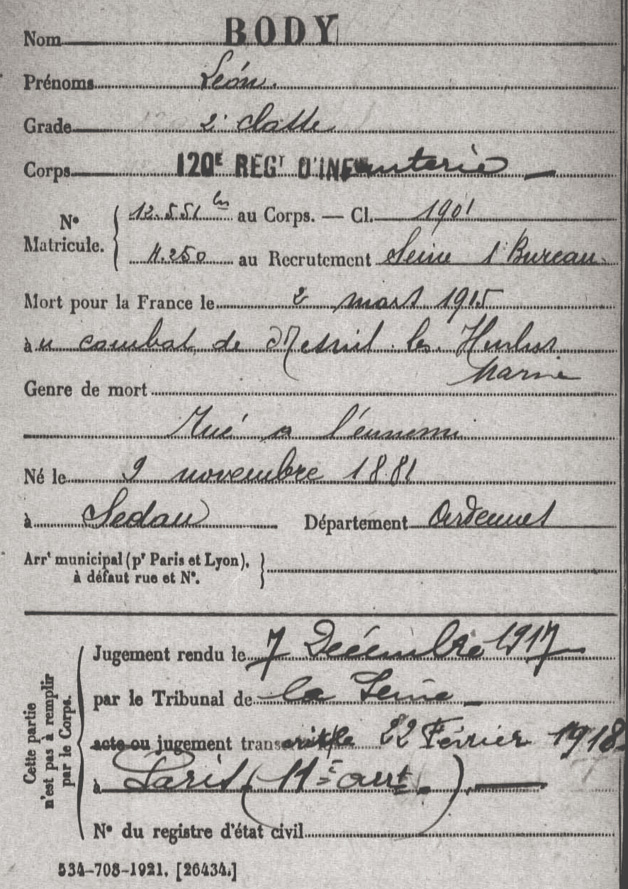 Nom BODY
Prénoms Léon
Grade 2e classe
Corps 120E REGT D'INFanterie
No Matricule. 12.551 bis au Corps. — Cl. 1901
4.250 au Recrutement Seine 1r Bureau
Mort pour la France le 2 mars 1915
au combat de Mesnil les Hurlus
Marne
Genre de mort
Tué à l'ennemi
Né le 9 novembre 1881
à Sedan Département Ardennes
Arrt municipal (pr Paris et Lyon),
à défaut rue et No.
Cette partie
n'est pas à remplir
par le Corps.
Jugement rendu le 7 Décembre 1917
par le Tribunal de la Seine
acte ou jugement transcrit le 22 Février 1918
à Paris (11e arrt.)
No du registre d'état civil
534-708-1921. [26434.]